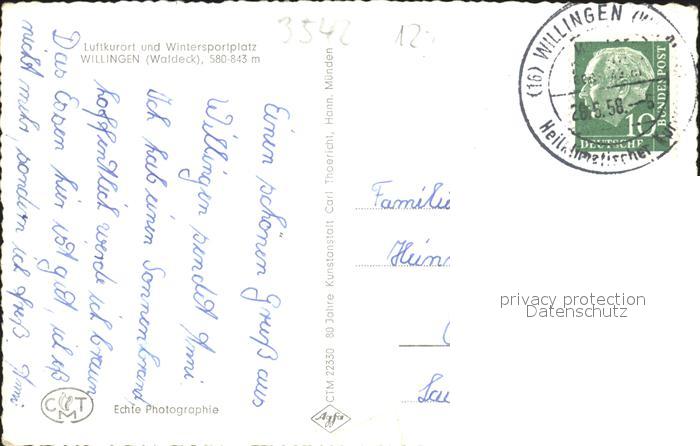 3542 12
Luftkurort und Wintersportplatz
WILLINGEN (Waldeck), 580-843 m
Einen schönen Gruß aus
Willingen sendet Anni.
Ich hab einen Sonnenbrand
hoffentlich werde ich braun
Das Essen hier ist gut, ich eß
nicht mehr, sondern ich freß. Anni
CTM
Echte Photographie
CTM 22330 80 Jahre Kunstanstalt Carl Thoericht, Hann. Münden
Agfa
(16) WILLINGEN
28.5.58.-6
Heilklimatischer
10
DEUTSCHE
BUNDESPOST
Familie
Hein
privacy protection
Datenschutz